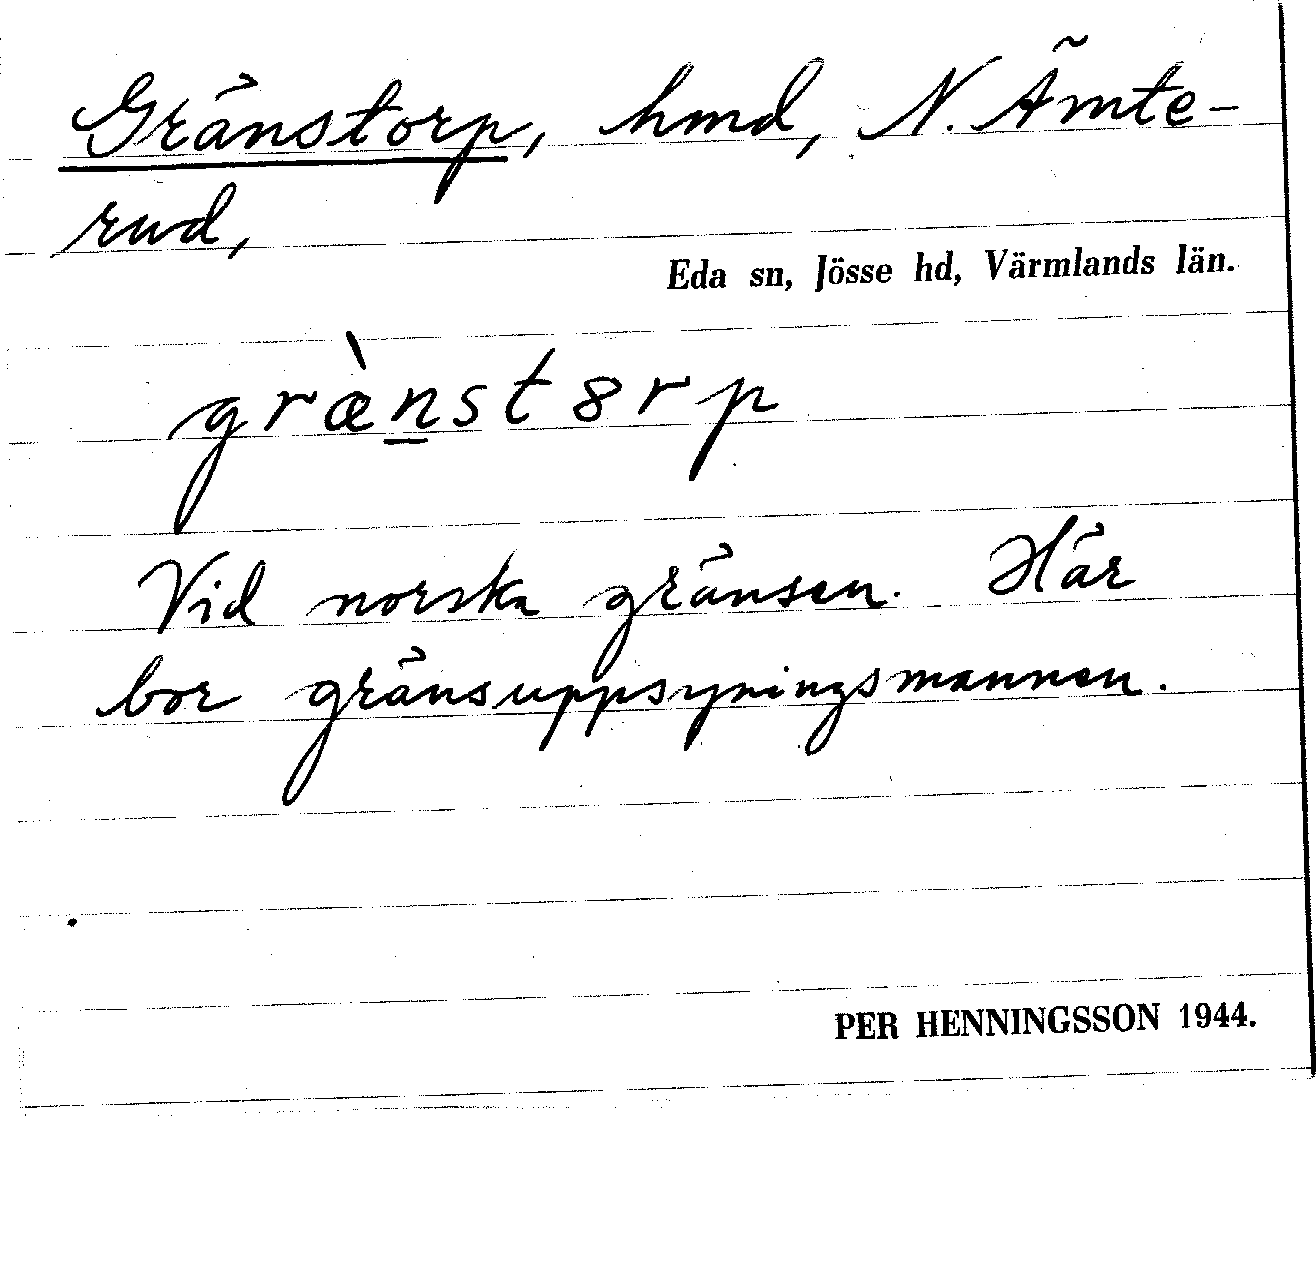 Gränstorp, hmd, N. Ämte-
rud,
Eda sn, Jösse hd, Värmlands län.
græ̀n̲st8rp
Vid norska gränsen. Här
bor gränsuppsyningsmannen.
PER HENNINGSSON 1944.